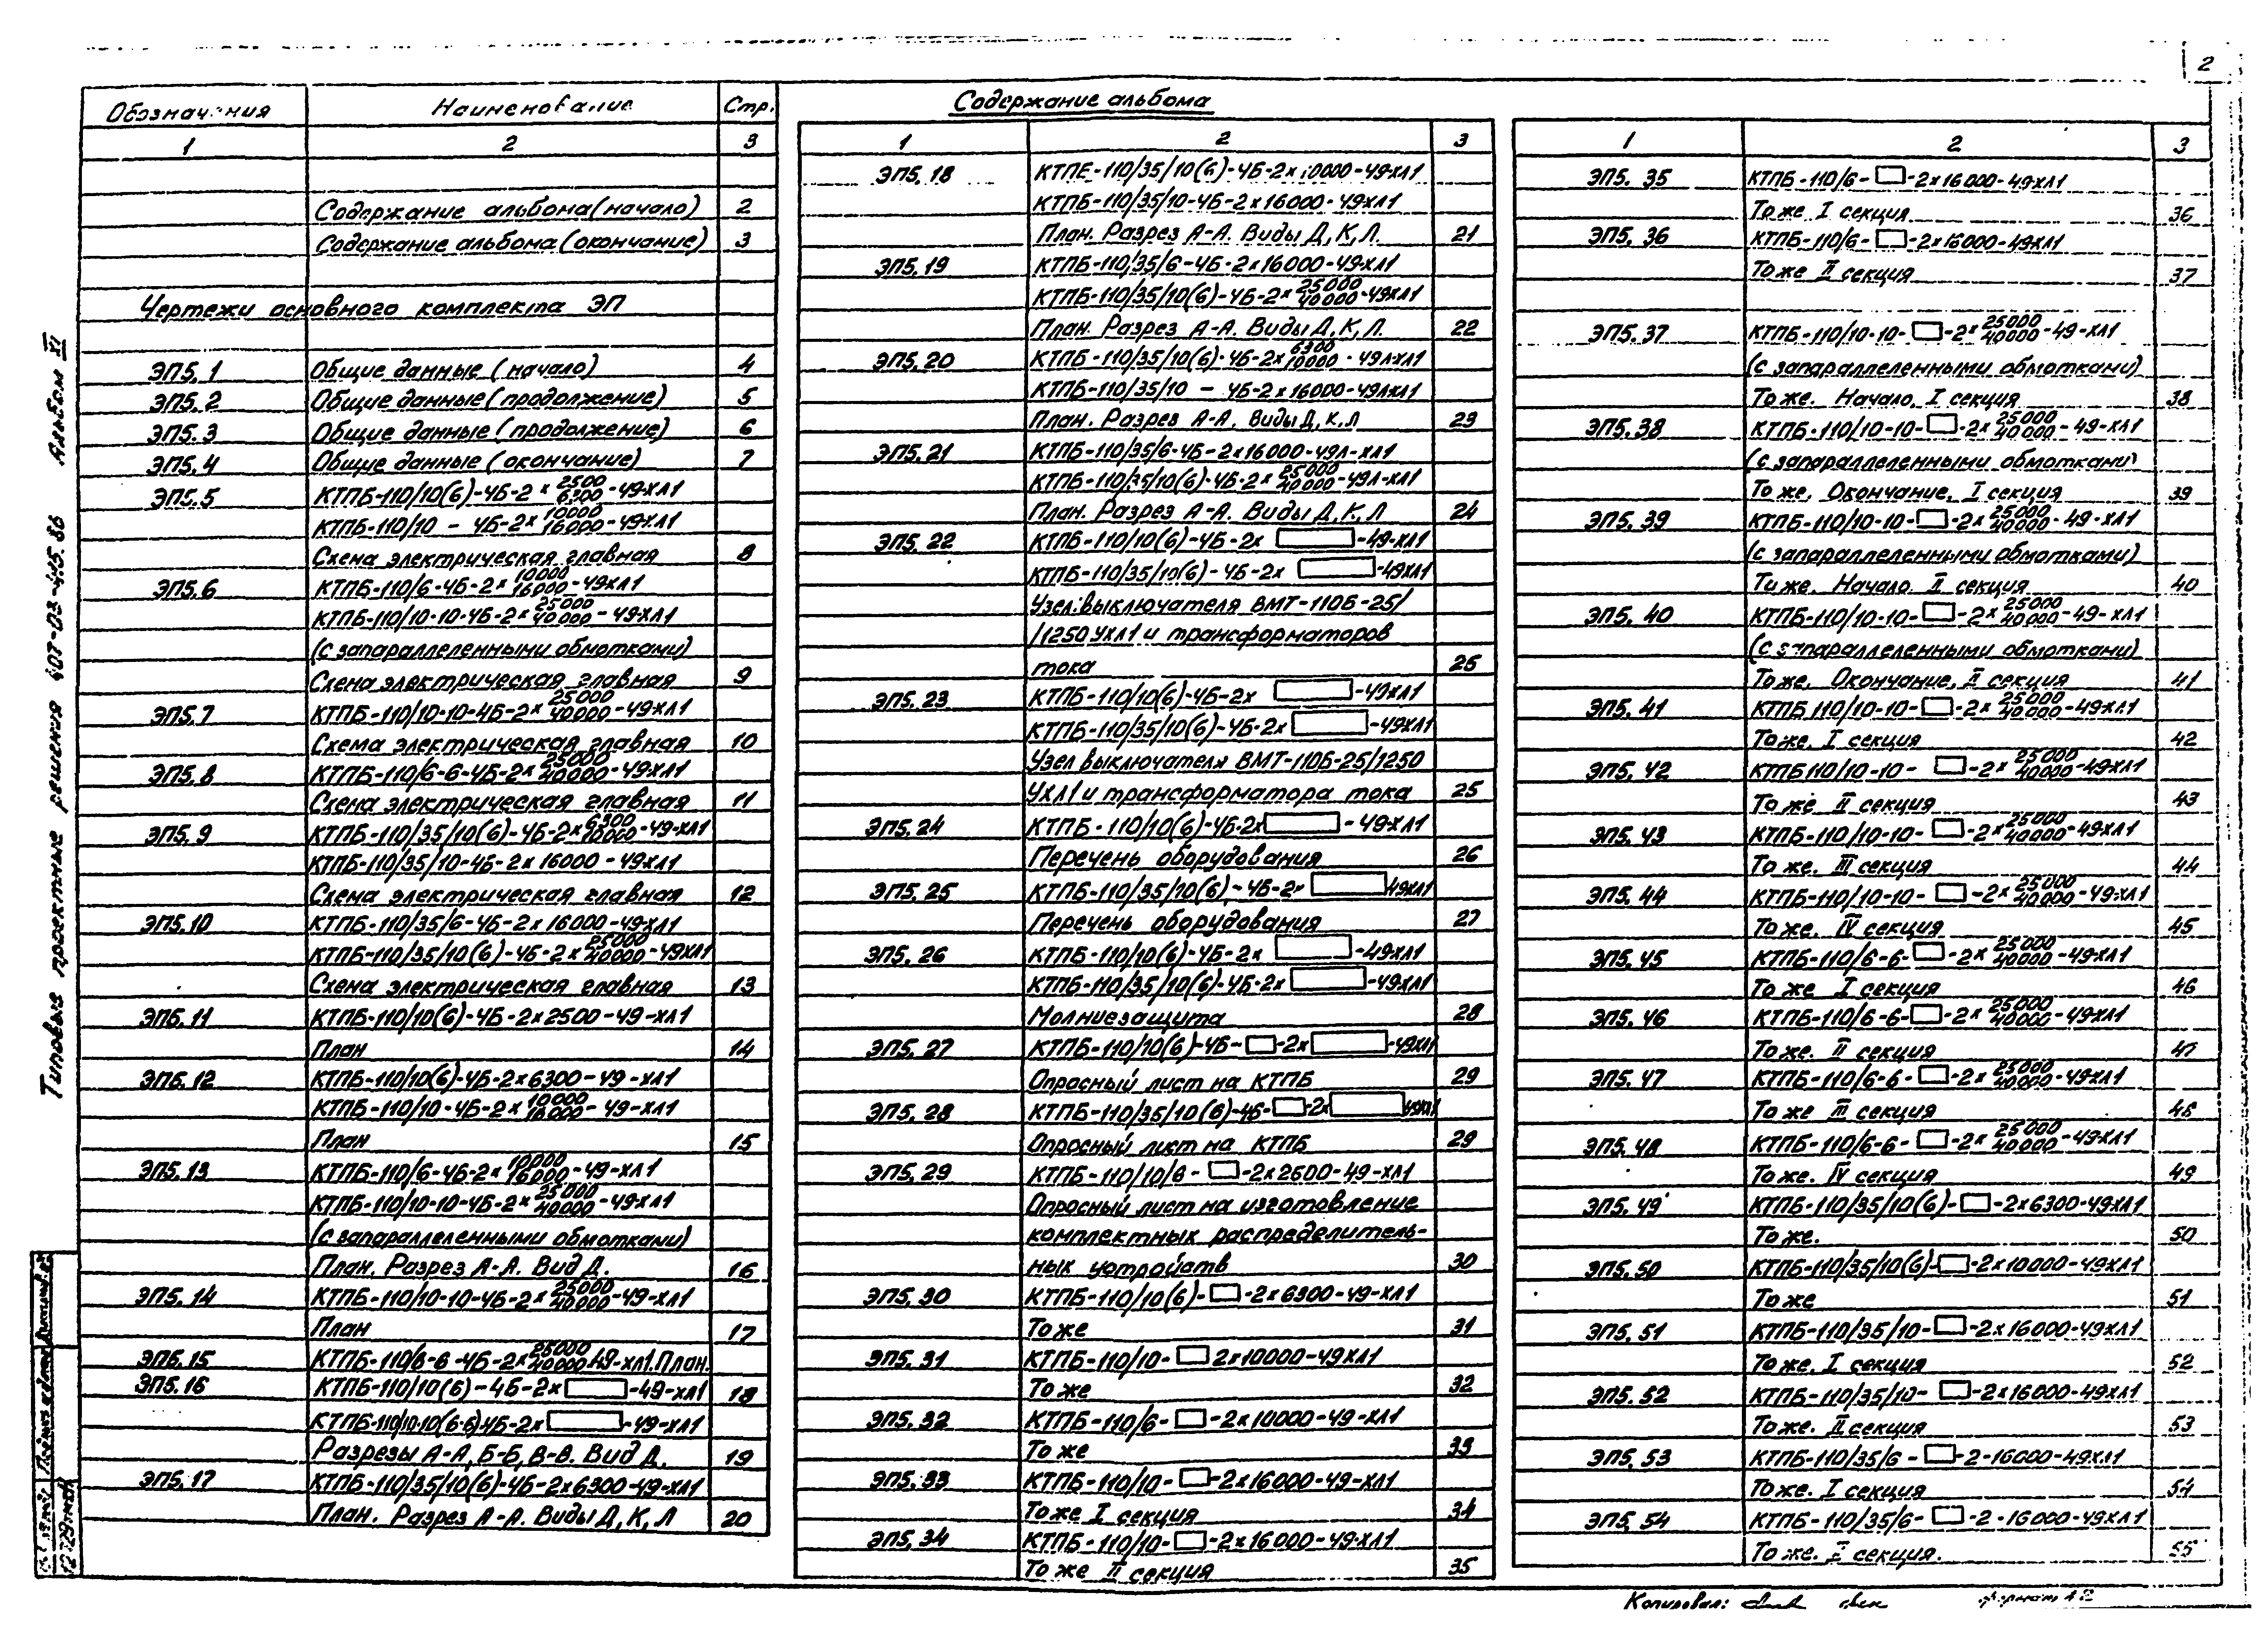 2
Содержание альбома
Обозначения Наименование Стр.
1 2 3
Содержание альбома (начало) 2
Содержание альбома (окончание) 3
Чертежи основного комплекта ЭП
ЭП5.1 Общие данные (начало) 4
ЭП5.2 Общие данные (продолжение) 5
ЭП5.3 Общие данные (продолжение) 6
ЭП5.4 Общие данные (окончание) 7
ЭП5.5 КТПБ-110/10(6)-4Б-2× 2500/6300 -49-ХЛ1
КТПБ-110/10 - 4Б-2× 10000/16000 -49-ХЛ1
Схема электрическая главная 8
ЭП5.6 КТПБ-110/6-4Б-2× 10000/16000 -49ХЛ1
КТПБ-110/10-10-4Б-2× 25000/40000 -49-ХЛ1
(с запараллеленными обмотками)
Схема электрическая главная 9
ЭП5.7 КТПБ-110/10-10-4Б-2× 25000/40000 -49-ХЛ1
Схема электрическая главная 10
ЭП5.8 КТПБ-110/6-6-4Б-2× 25000/40000 -49-ХЛ1
Схема электрическая главная 11
ЭП5.9 КТПБ-110/35/10(6)-4Б-2× 6300/10000 -49-ХЛ1
КТПБ-110/35/10-4Б-2×16000-49ХЛ1
Схема электрическая главная 12
ЭП5.10 КТПБ-110/35/6-4Б-2×16000-49-ХЛ1
КТПБ-110/35/10(6)-4Б-2× 25000/40000 -49ХЛ1
Схема электрическая главная 13
ЭП5.11 КТПБ-110/10(6)-4Б-2×2500-49-ХЛ1
План 14
ЭП5.12 КТПБ-110/10(6)-4Б-2×6300-49-ХЛ1
КТПБ-110/10-4Б-2× 10000/16000 -49-ХЛ1
План 15
ЭП5.13 КТПБ-110/6-4Б-2× 10000/16000 -49-ХЛ1
КТПБ-110/10-10-4Б-2× 25000/40000 -49-ХЛ1
(с запараллеленными обмотками)
План. Разрез А-А. Вид Д. 16
ЭП5.14 КТПБ-110/10-10-4Б-2× 25000/40000 -49-ХЛ1
План 17
ЭП5.15 КТПБ-110/6-6-4Б-2× 25000/40000 49-ХЛ1.План.
ЭП5.16 КТПБ-110/10(6)-4Б-2×□-49-ХЛ1 18
КТПБ-110/10-10(6-6)-4Б-2×□-49-ХЛ1
Разрезы А-А, Б-Б, В-В. Вид Д. 19
ЭП5.17 КТПБ-110/35/10(6)-4Б-2×6300-49-ХЛ1
План. Разрез А-А. Виды Д, К, Л 20
1 2 3
ЭП5.18 КТПБ-110/35/10(6)-4Б-2×10000-49-ХЛ1
КТПБ-110/35/10-4Б-2×16000-49ХЛ1
План. Разрез А-А. Виды Д, К, Л. 21
ЭП5.19 КТПБ-110/35/6-4Б-2×16000-49-ХЛ1
КТПБ-110/35/10(6)-4Б-2× 25000/40000 -49ХЛ1
План. Разрез А-А. Виды Д, К, Л. 22
ЭП5.20 КТПБ-110/35/10(6)-4Б-2× 6300/10000 -49Л-ХЛ1
КТПБ-110/35/10 - 4Б-2×16000-49ЛХЛ1
План. Разрез А-А. Виды Д, К, Л 23
ЭП5.21 КТПБ-110/35/6-4Б-2×16000-49Л-ХЛ1
КТПБ-110/35/10(6)-4Б-2× 25000/40000 -49Л-ХЛ1
План. Разрез А-А. Виды Д, К, Л 24
ЭП5.22 КТПБ-110/10(6)-4Б-2× □-49-ХЛ1
КТПБ-110/35/10(6)-4Б-2× □-49ХЛ1
Узел выключателя ВМТ-110Б-25/
/1250УХЛ1 и трансформаторов
тока 25
ЭП5.23 КТПБ-110/10(6)-4Б-2× □-49ХЛ1
КТПБ-110/35/10(6)-4Б-2× □-49ХЛ1
Узел выключателя ВМТ-110Б-25/1250
УХЛ1 и трансформатора тока 25
ЭП5.24 КТПБ-110/10(6)-4Б-2×□-49-ХЛ1
Перечень оборудования 26
ЭП5.25 КТПБ-110/35/10(6)-4Б-2×□49ХЛ1
Перечень оборудования 27
ЭП5.26 КТПБ-110/10(6)-4Б-2× □-49ХЛ1
КТПБ-110/35/10(6)-4Б-2×□-49ХЛ1
Молниезащита 28
ЭП5.27 КТПБ-110/10(6)-4Б-□-2×□-49ХЛ1
Опросный лист на КТПБ 29
ЭП5.28 КТПБ-110/35/10(6)-4Б-□-2×□49ХЛ1
Опросный лист на КТПБ 29
ЭП5.29 КТПБ-110/10/6-□-2×2500-49-ХЛ1
Опросный лист на изготовление
комплектных распределитель-
ных устройств 30
ЭП5.30 КТПБ-110/10(6)-□-2×6300-49-ХЛ1
То же 31
ЭП5.31 КТПБ-110/10-□ 2×10000-49ХЛ1
То же 32
ЭП5.32 КТПБ-110/6-□-2×10000-49-ХЛ1
То же 33
ЭП5.33 КТПБ-110/10-□-2×16000-49-ХЛ1
То же I секция 34
ЭП5.34 КТПБ-110/10-□-2×16000-49-ХЛ1
То же II секция 35
1 2 3
ЭП5.35 КТПБ-110/6-□-2×16000-49-ХЛ1
То же I секция 36
ЭП5.36 КТПБ-110/6-□-2×16000-49ХЛ1
То же II секция 37
ЭП5.37 КТПБ-110/10-10-□-2× 25000/40000 -49-ХЛ1
(с запараллеленными обмотками)
То же. Начало. I секция 38
ЭП5.38 КТПБ-110/10-10-□-2× 25000/40000 -49-ХЛ1
(с запараллеленными обмотками)
То же. Окончание. I секция 39
ЭП5.39 КТПБ-110/10-10-□-2× 25000/40000 -49-ХЛ1
(с запараллеленными обмотками)
То же. Начало. II секция 40
ЭП5.40 КТПБ-110/10-10-□-2× 25000/40000 -49-ХЛ1
(с запараллеленными обмотками)
То же. Окончание. II секция 41
ЭП5.41 КТПБ 110/10-10-□-2× 25000/40000 -49-ХЛ1
То же. I секция 42
ЭП5.42 КТПБ 110/10-10- □-2× 25000/40000 -49ХЛ1
То же II секция 43
ЭП5.43 КТПБ-110/10-10- □-2× 25000/40000 -49ХЛ1
То же. III секция 44
ЭП5.44 КТПБ-110/10-10- □-2× 25000/40000 -49-ХЛ1
То же. IV секция 45
ЭП5.45 КТПБ-110/6-6-□-2× 25000/40000 -49-ХЛ1
То же I секция 46
ЭП5.46 КТПБ-110/6-6-□-2× 25000/40000 -49ХЛ1
То же. II секция 47
ЭП5.47 КТПБ-110/6-6-□-2× 25000/40000 -49ХЛ1
То же III секция 48
ЭП5.48 КТПБ-110/6-6-□-2× 25000/40000 -49ХЛ1
То же. IV секция 49
ЭП5.49 КТПБ-110/35/10(6)-□-2×6300-49ХЛ1
То же. 50
ЭП5.50 КТПБ-110/35/10(6)-□-2×10000-49ХЛ1
То же 51
ЭП5.51 КТПБ-110/35/10-□-2×16000-49ХЛ1
То же. I секция 52
ЭП5.52 КТПБ-110/35/10- □-2×16000-49ХЛ1
То же. II секция 53
ЭП5.53 КТПБ-110/35/6-□-2-16000-49ХЛ1
То же. I секция 54
ЭП5.54 КТПБ-110/35/6-□-2-16000-49ХЛ1
То же. II секция. 55
Типовые проектные решения 407-03-415.86 Альбом XI
Копировал:
формат А2